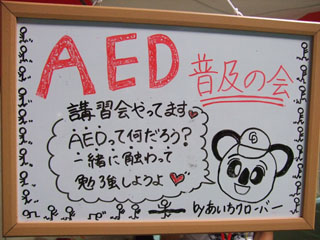 AED
普及の会
講習会やってます
AEDって何だろう?
一緒に触わって
勉強しようよ
CD
byあいちクローバー